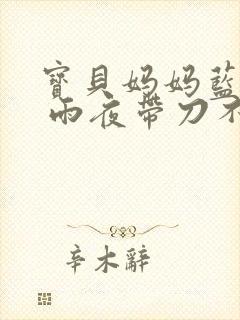 寶貝妈妈藍
雨夜帶刀不
辛木辭